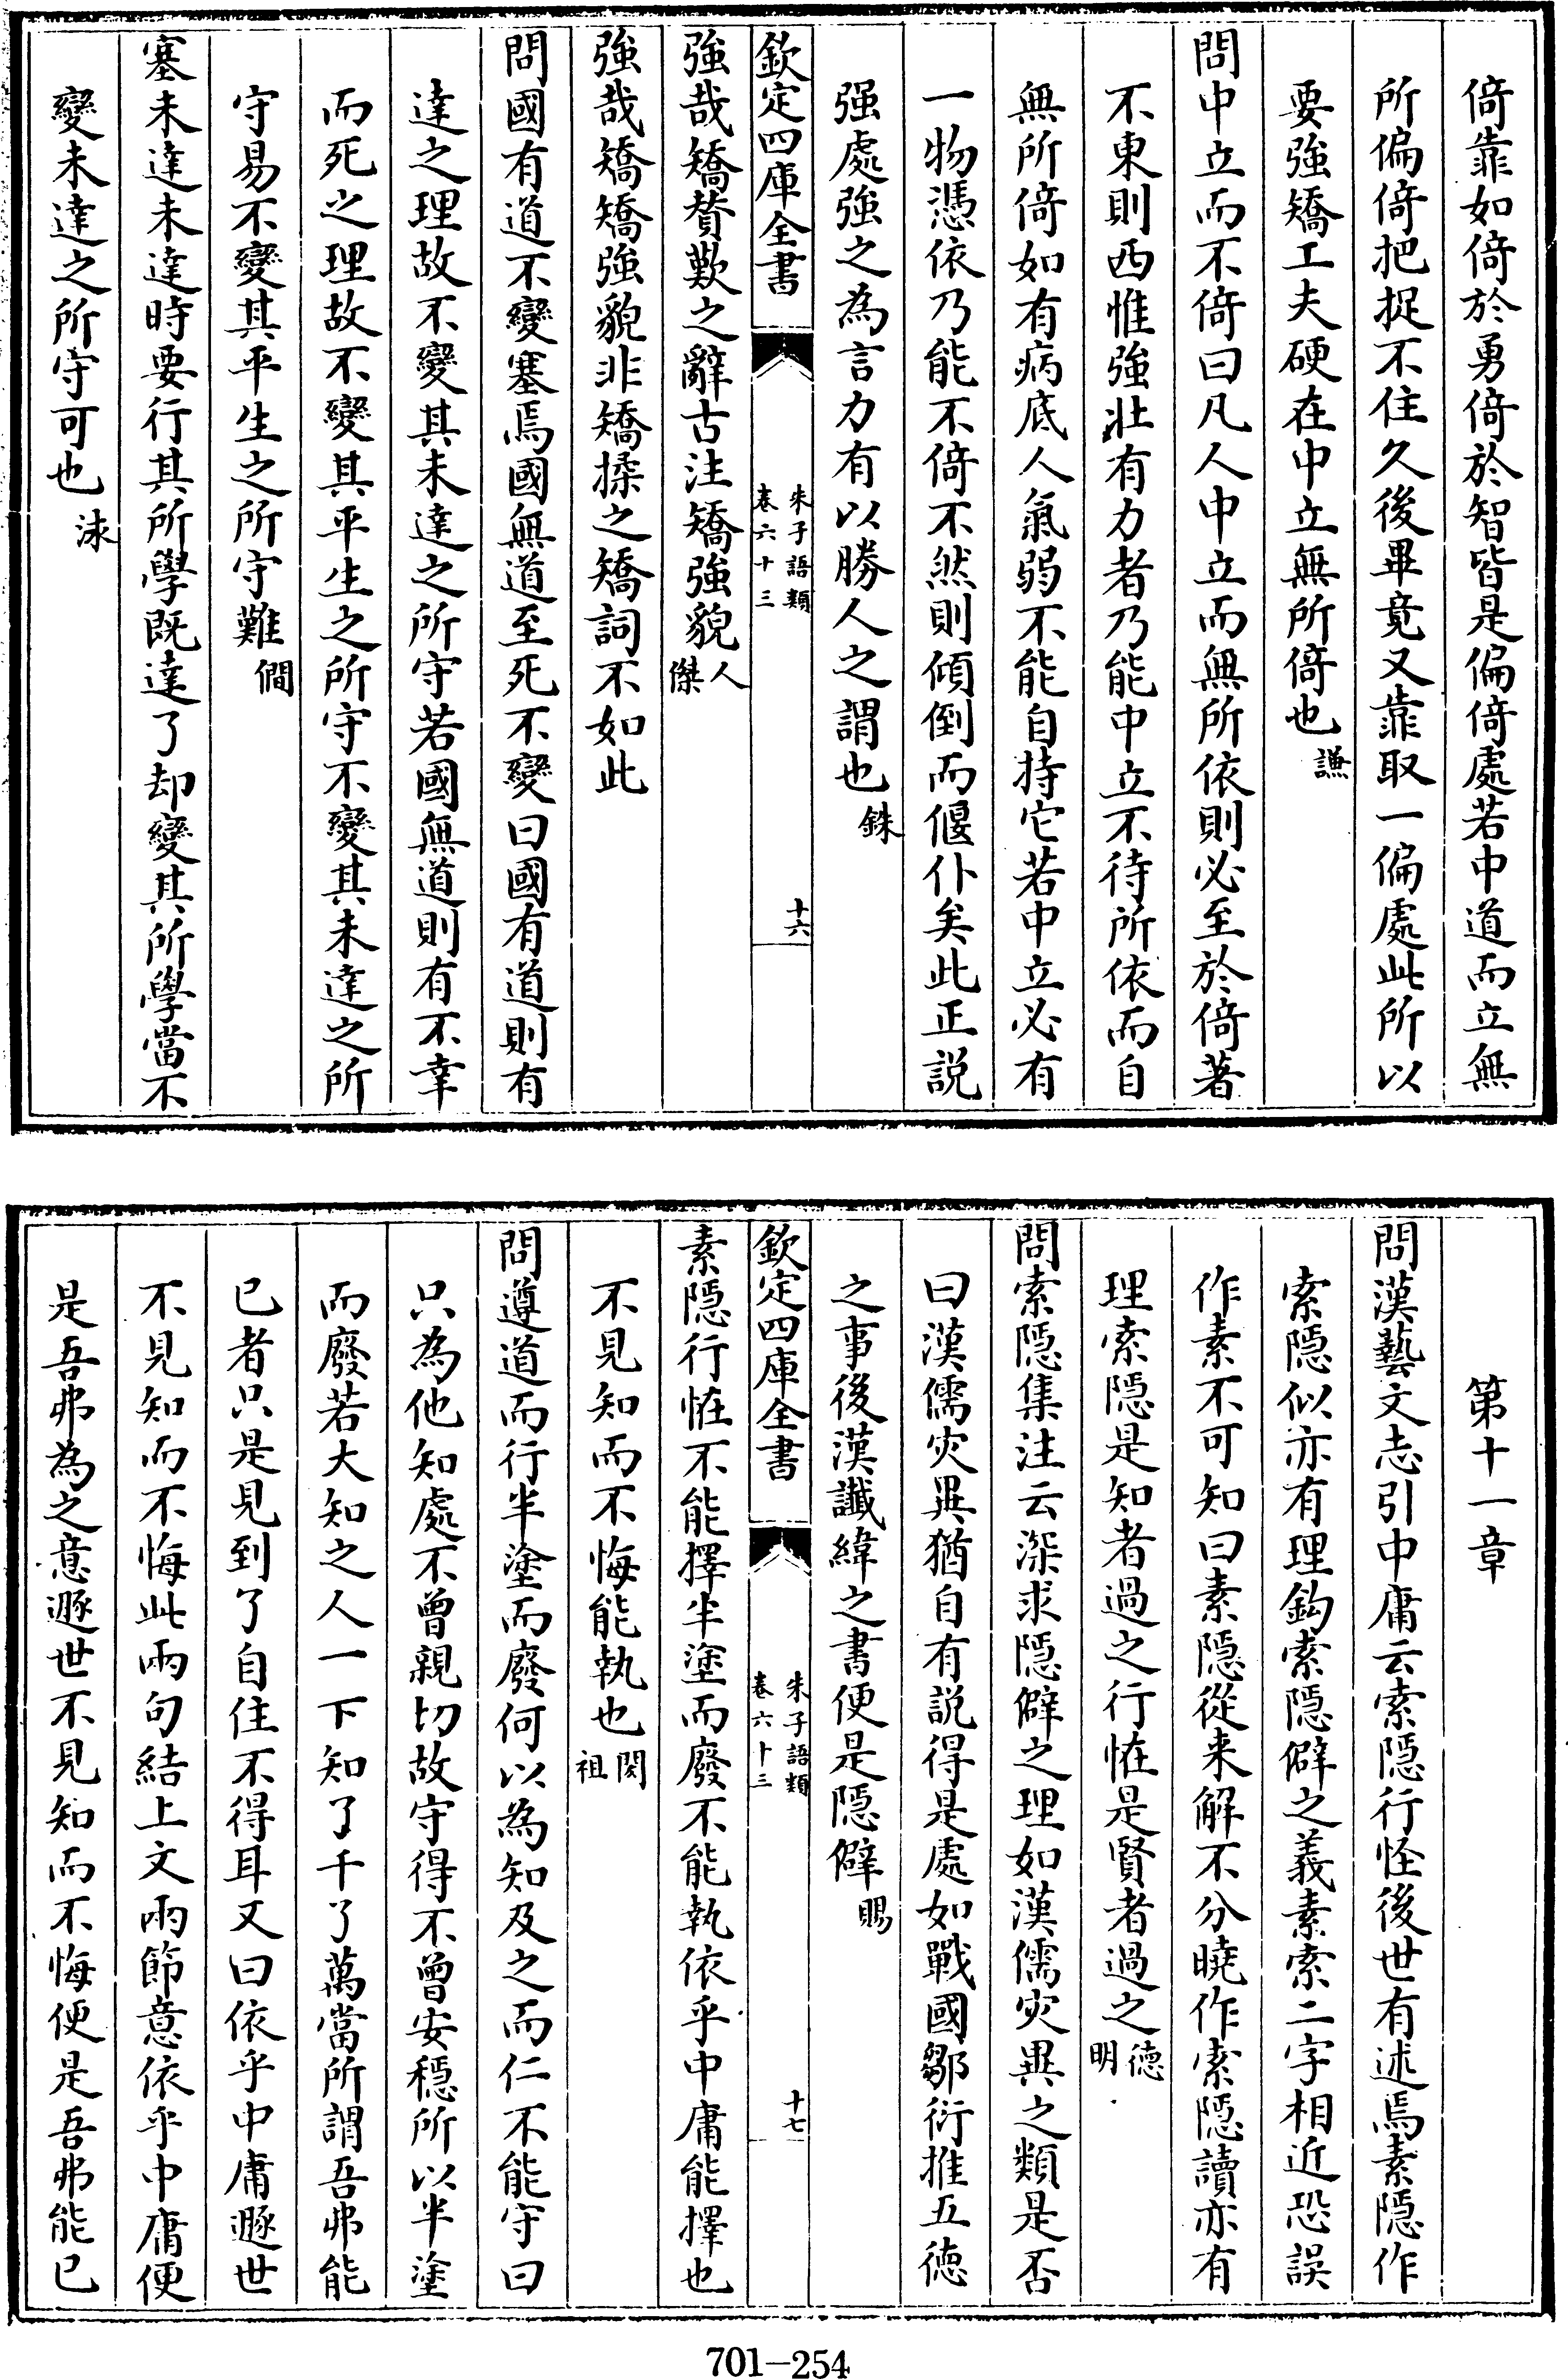 倚靠如倚於勇倚於智皆是偏倚處若中道而立無
所偏倚把捉不住久後畢竟又靠取一偏處此所以
要強矯工夫硬在中立無所倚也謙
問中立而不倚曰凡人中立而無所依則必至於倚著
不東則西惟強壯有力者乃能中立不待所依而自
無所倚如有病底人氣弱不能自持它若中立必有
一物憑依乃能不倚不然則傾倒而偃仆矣此正説
强處強之為言力有以勝人之謂也銖
欽定四庫全書
朱子語類
卷六十三
十六
強哉矯賛歎之辭古注矯強貌人
傑
強哉矯矯強貌非矯揉之矯詞不如此
問國有道不變塞焉國無道至死不變曰國有道則有
達之理故不變其未達之所守若國無道則有不幸
而死之理故不變其平生之所守不變其未達之所
守易不變其平生之所守難僴
塞未達未達時要行其所學既達了却變其所學當不
變未達之所守可也洡
第十一章
問漢藝文志引中庸云索隠行怪後世有述焉素隠作
索隠似亦有理鈎索隠僻之義素索二字相近恐誤
作素不可知曰素隠從来解不分曉作索隠讀亦有
理索隠是知者過之行恠是賢者過之德
明
問索隠集注云深求隠僻之理如漢儒灾異之類是否
曰漢儒灾異猶自有説得是處如戰國鄒衍推五徳
之事後漢讖緯之書便是隠僻賜
欽定四庫全書
朱子語類
卷六十三
十七
素隠行恠不能擇半塗而廢不能執依乎中庸能擇也
不見知而不悔能執也閎
祖
問遵道而行半塗而廢何以為知及之而仁不能守曰
只為他知處不曾親切故守得不曾安穩所以半塗
而廢若大知之人一下知了千了萬當所謂吾弗能
已者只是見到了自住不得耳又曰依乎中庸遯世
不見知而不悔此兩句結上文兩節意依乎中庸便
是吾弗為之意遯世不見知而不悔便是吾弗能已
701-254